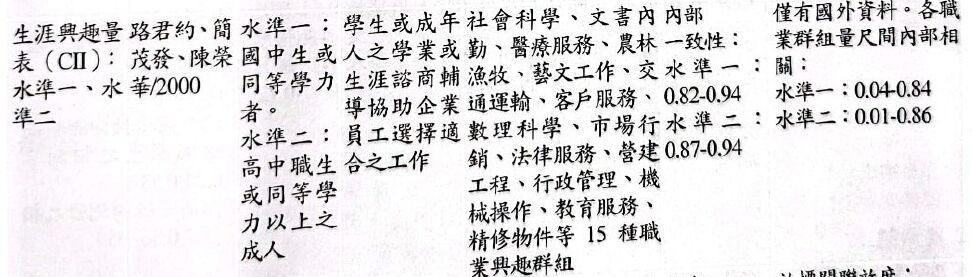 生涯興趣量
表(CII)：
水準一、水
準二
路君約、簡
茂發、陳榮
華/2000
水準一：
國中生或
同等學力
者。
水準二：
高中職生
或同等學
力以上之
成人
學生或成年
人之學業或
生涯諮商輔
導協助企業
員工選擇適
合之工作
社會科學、文書內
勤、醫療服務、農林
漁牧、藝文工作、交
通運輸、客戶服務、
數理科學、市場行
銷、法律服務、營建
工程、行政管理、機
械操作、教育服務、
精修物件等 15 種職
業興趣群組
內部
一致性：
水準一：
0.82-0.94
水準二：
0.87-0.94
僅有國外資料。各職
業群組量尺間內部相
關：
水準一：0.04-0.84
水準二：0.01-0.86